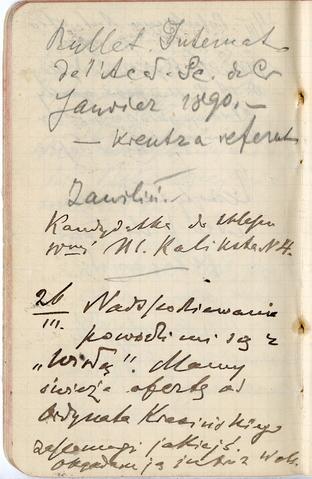 Bullet. Internat
de l'Acad. Sc. de Cr
Janvier 1890.—
— Kreutza referat
Zawiliń.
Kandydatka do sklepu
Kaliksta N 4.
26/III. Nadspodziewanie
powodzi mi się z
„Wisłą". Mamy
świeżo ofertę od
Ordynata Krasińskiego
zapomogi jakiejś.